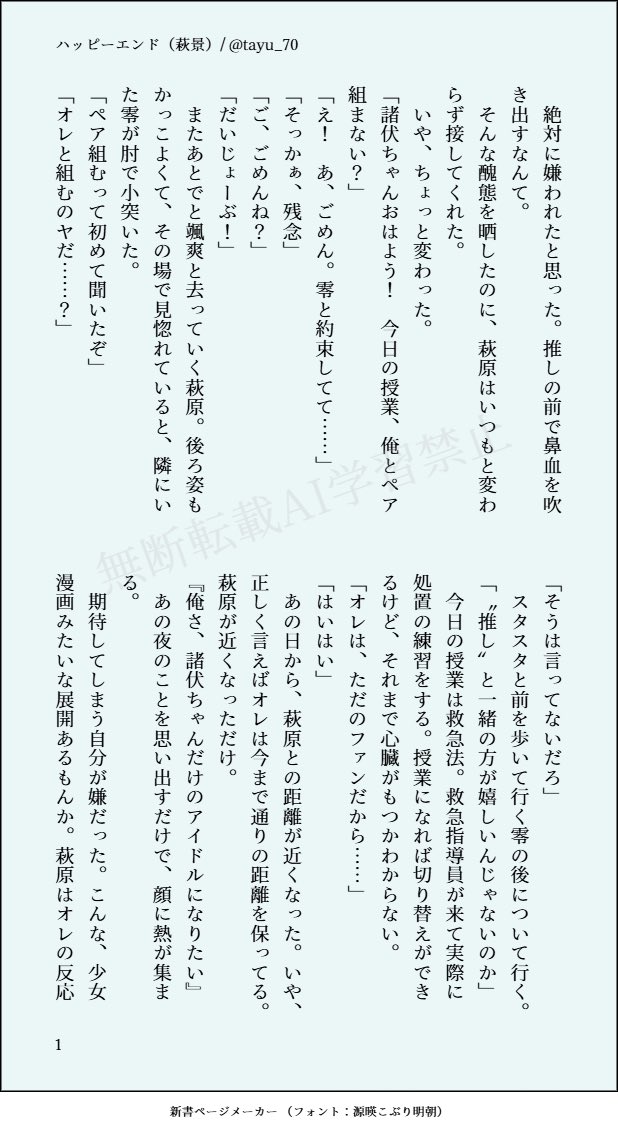 ハッピーエンド（萩景）/ @tayu_70
　絶対に嫌われたと思った。推しの前で鼻血を吹
き出すなんて。
　そんな醜態を晒したのに、萩原はいつもと変わ
らず接してくれた。
　いや、ちょっと変わった。
「諸伏ちゃんおはよう！　今日の授業、俺とペア
組まない？」
「え！　あ、ごめん。零と約束してて……」
「そっかぁ、残念」
「ご、ごめんね？」
「だいじょーぶ！」
　またあとでと颯爽と去っていく萩原。後ろ姿も
かっこよくて、その場で見惚れていると、隣にい
た零が肘で小突いた。
「ペア組むって初めて聞いたぞ」
「オレと組むのヤだ……？」
「そうは言ってないだろ」
　スタスタと前を歩いて行く零の後について行く。
「〝推し〟と一緒の方が嬉しいんじゃないのか」
　今日の授業は救急法。救急指導員が来て実際に
処置の練習をする。授業になれば切り替えができ
るけど、それまで心臓がもつかわからない。
「オレは、ただのファンだから……」
「はいはい」
　あの日から、萩原との距離が近くなった。いや、
正しく言えばオレは今まで通りの距離を保ってる。
萩原が近くなっただけ。
『俺さ、諸伏ちゃんだけのアイドルになりたい』
　あの夜のことを思い出すだけで、顔に熱が集ま
る。
　期待してしまう自分が嫌だった。こんな、少女
漫画みたいな展開あるもんか。萩原はオレの反応
無断転載AI学習禁止
1
新書ページメーカー（フォント：源暎こぶり明朝）